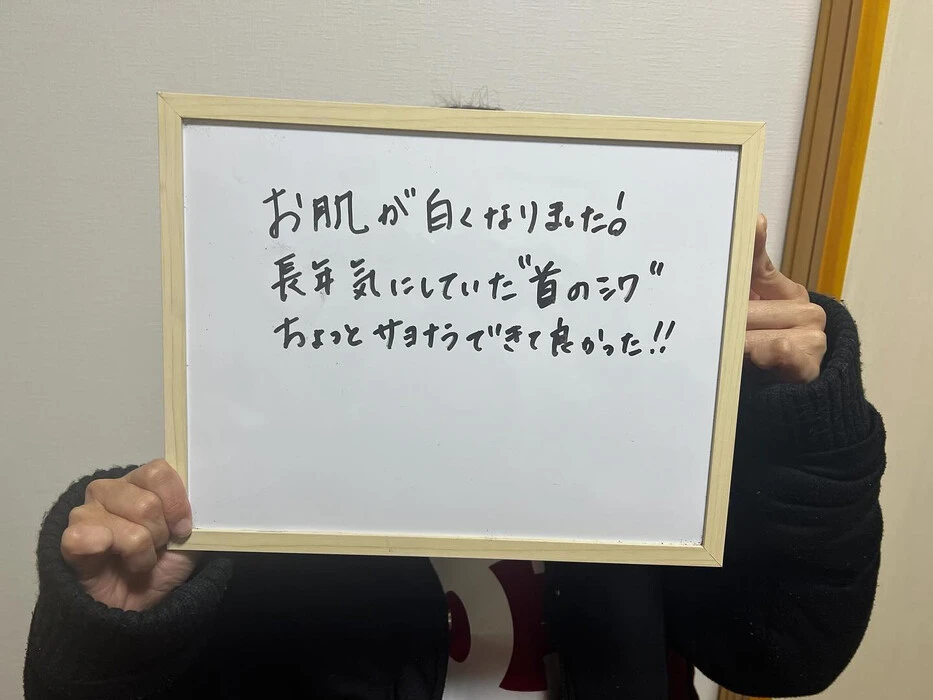 お肌が白くなりました!
長年気にしていた"首のシワ"
ちょっとサヨナラできて良かった!!